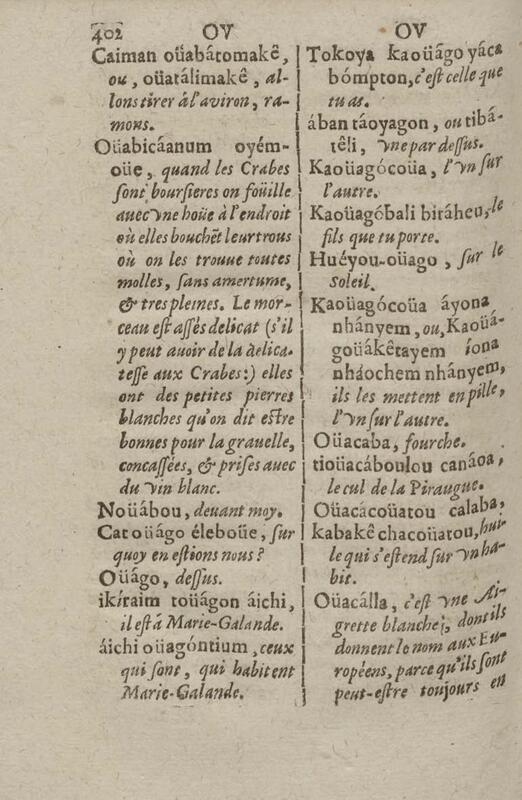 402 OV OV
Caiman oüabátomakê,
ou, oüatálimakê, al-
lons tirer á l'aviron, ra-
mons.
Oüabicáanum oyém-
oüe, quand les Crabes
ſont bourſieres on foüille
auec vne hoüe à l'endroit
où elles bouchẽt leur trous
où on les trouue toutes
molles, ſans amertume,
& tres pleines. Le mor-
ceau eſt aſſés delicat (s'il
y peut auoir de la delica-
teſſe aux Crabes:) elles
ont des petites pierres
blanches qu'on dit eſtre
bonnes pour la grauelle,
concaſſées, & priſes auec
du vin blanc.
Noüábou, deuant moy.
Cat oüágo éleboüe, ſur
quoy en eſtions nous?
Oüágo, deſſus.
ikíraim toüágon áichi,
il eſt á Marie-Galande.
áichi oüagóntium, ceux
qui ſont, qui habitent
Marie-Galande.
Tokoya kaoüágo yáca
bómpton, c'eſt celle que
tu as.
ában táoyagon, ou tibá-
têli, vne par deſſus.
Kaoüagócoüa, l'vn ſur
l'autre.
Kaoüagóbali biráheu, le
fils que tu porte.
Huéyou-oüago, ſur le
ſoleil.
Kaoüagócoüa áyona
nhányem, ou, Kaoüá-
goüákêtayem íona
nháochem nhányem,
ils les mettent en pille,
l'vn ſur l'autre.
Oüacaba, fourche.
tioüacáboulou canáoa,
le cul de la Piraugue.
Oüacácoüatou calaba,
kabakê chacoüatou, hui-
le qui s'eſtend ſur vn ha-
bit.
Oüacálla, c'eſt vne Ai-
grette blanche, dont ils
donnent le nom aux Eu-
ropéens, parce qu'ils ſont
peut-eſtre toujours en